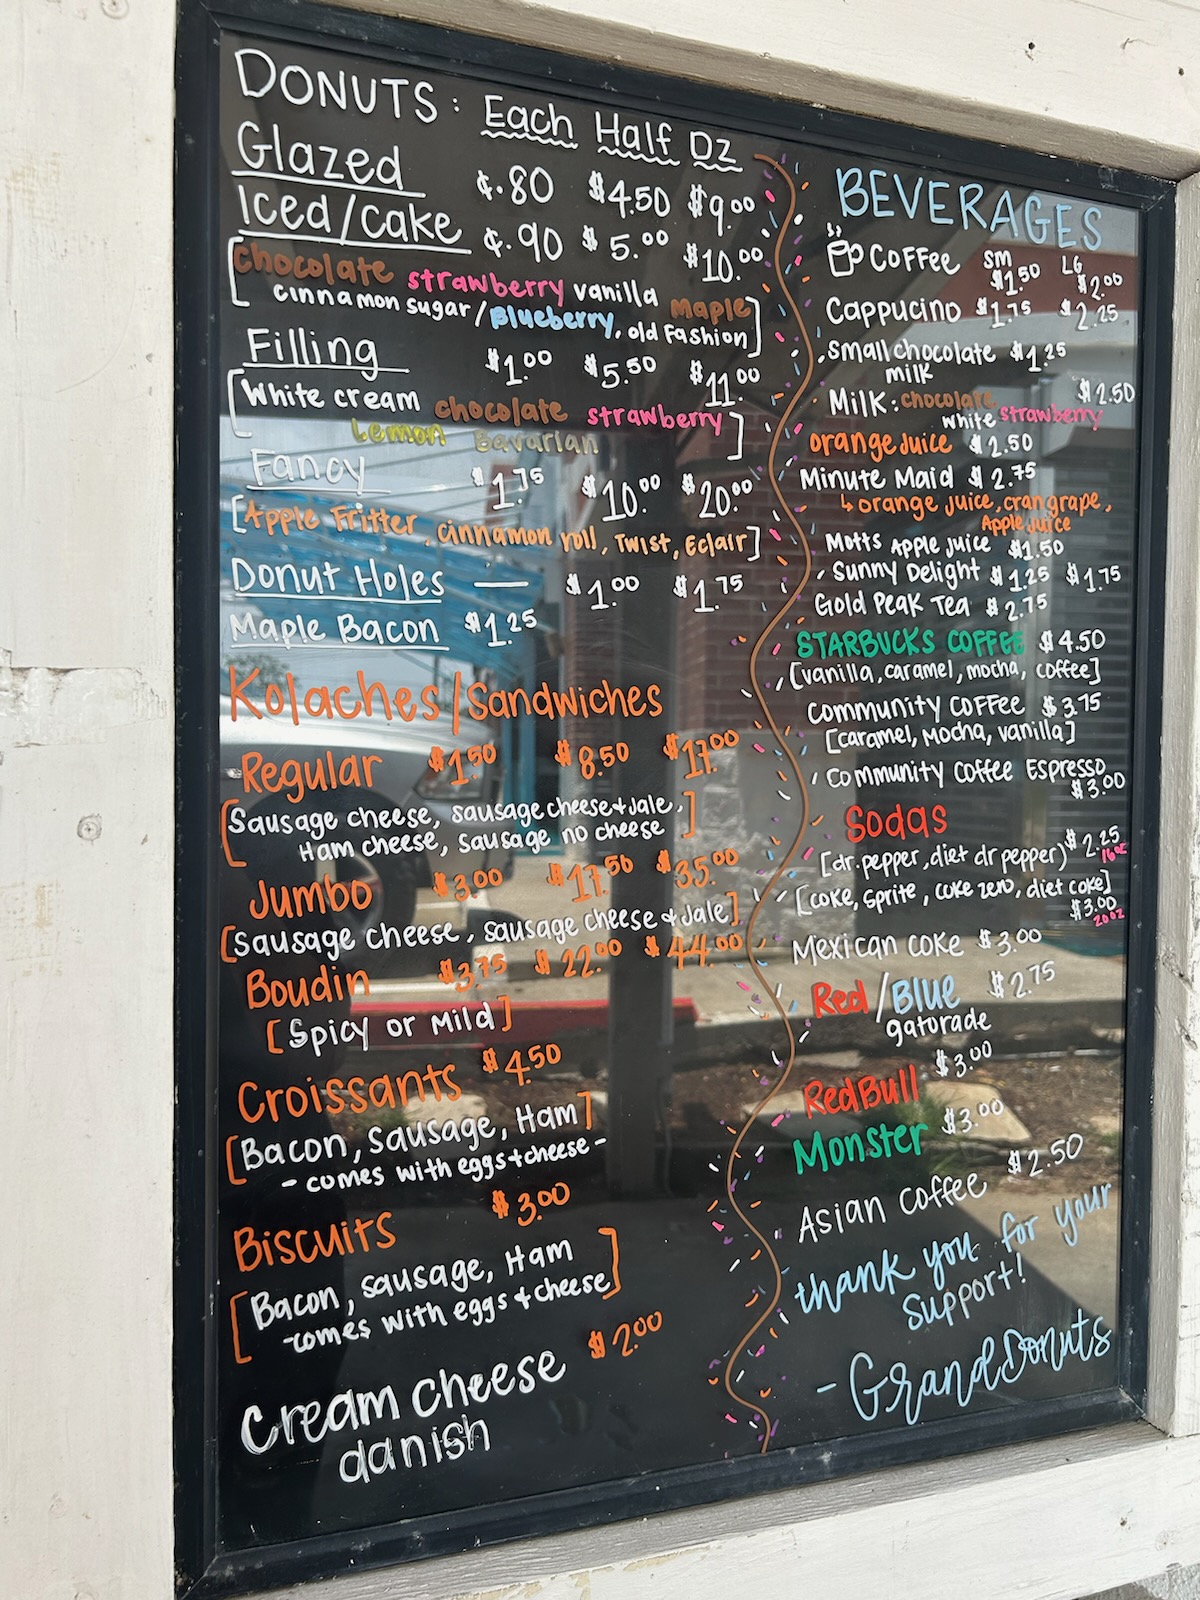 DONUTS: Each Half Dz
Glazed ¢.80 $4.50 $9.00
Iced/Cake ¢.90 $5.00 $10.00
[chocolate strawberry vanilla Maple
cinnamon sugar/Blueberry, old Fashion]
Filling $1.00 $5.50 $11.00
[White cream chocolate strawberry
Lemon Bavarian]
Fancy $1.75 $10.00 $20.00
[Apple Fritter, cinnamon roll, Twist, Eclair]
Donut Holes — $1.00 $1.75
Maple Bacon $1.25
Kolaches/Sandwiches
Regular $1.50 $8.50 $17.00
[Sausage cheese, sausage cheese + Jale,
Ham cheese, sausage no cheese]
Jumbo $3.00 $17.50 $35.00
[Sausage cheese, sausage cheese + Jale]
Boudin $3.75 $22.00 $44.00
[Spicy or Mild]
Croissants $4.50
[Bacon, sausage, Ham]
- comes with eggs + cheese -
Biscuits $3.00
[Bacon, sausage, Ham
-comes with eggs + cheese]
Cream cheese $2.00
danish
BEVERAGES
COFFEE SM $1.50 LG $2.00
Cappucino $1.75 $2.25
Small chocolate $1.25
milk
Milk: chocolate $2.50
white strawberry
orange Juice $2.50
Minute Maid $2.75
↳ orange juice, cran grape,
Apple Juice
Motts Apple Juice $1.50
Sunny Delight $1.25 $1.75
Gold Peak Tea $2.75
STARBUCKS COFFEE $4.50
[vanilla, caramel, mocha, coffee]
Community COFFEE $3.75
[caramel, Mocha, vanilla]
Community Coffee Espresso
$3.00
Sodas
[dr. pepper, diet dr pepper) $2.25
16oz
[coke, sprite, coke zero, diet coke]
$3.00
20oz
Mexican coke $3.00
Red/Blue $2.75
gatorade
RedBull $3.00
Monster $3.00
Asian Coffee $2.50
thank you for your
support!
- Grand Donuts